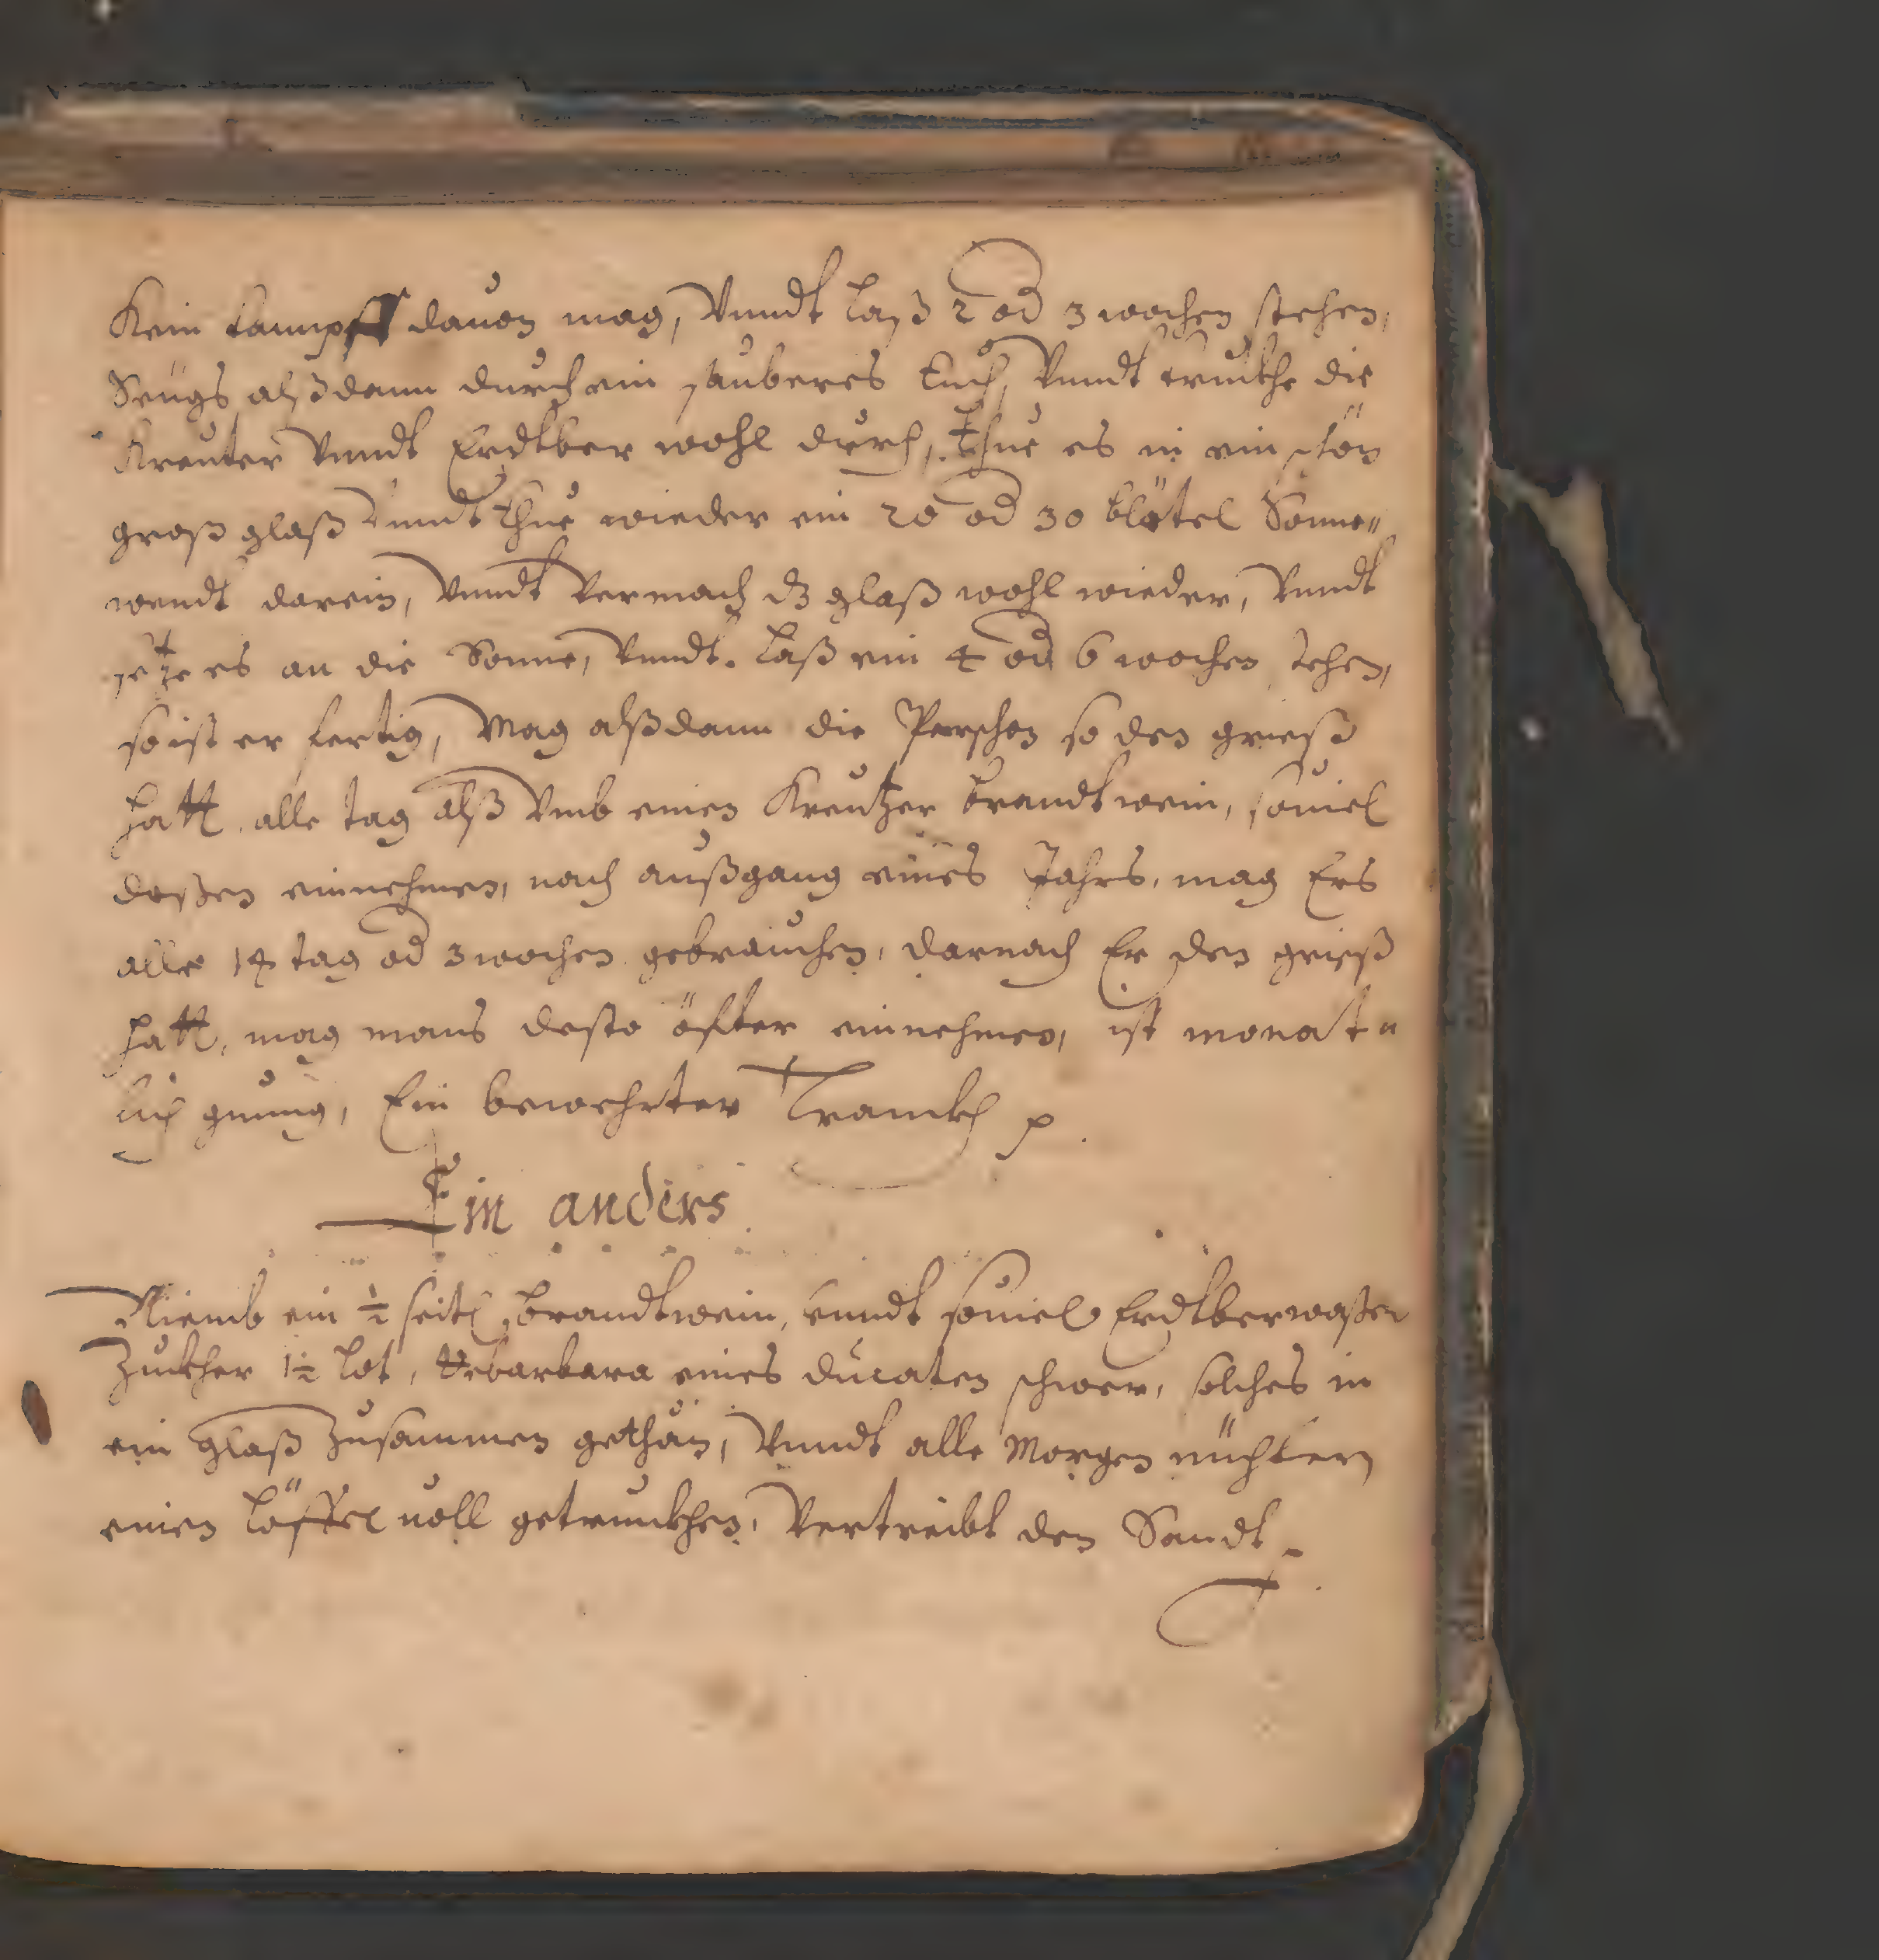 Kein dampff dauon mag, Vnndt laß 2 od 3 wochen stehen,
Seugs alßdann durch ein sauberes tuch, Vnndt truckhe die
Kreuter Vnndt Erdtber wohl durch, thue es in ein schön
groß glaß Vnndt thue wieder ein 20 od 30 blätel Sonne„
wendt darein, Vnndt Vermach dz glaß wohl wieder, Vnndt
setze es an die Sonne, Vnndt laß ein 4 od 6 wochen stehen,
so ist er fertig, Mag alßdann die Perschon so den grieß
hatt alle tag alß Vmb einen Kreutzer brandtwein, souiel
deßen einnehmen, nach außgang eines Jahrs, mag Ers
alle 14 tag od 3 wochen gebrauchen, darnach Er den grieß
hatt, mag mans desto öffter einnehmen, ist monat„
lich gnung, Ein bewehrter Tranckh
Ein anders
Niemb ein ½ seitl brandtwein, vnndt souiel Erdtberwaßer
Zuckher 1½ lot, Rebarbara eines ducaten schwer, solches in
ein glaß zusammen gethan, Vnndt alle Morgen nüchtern
einen löffel uoll getrunckhen, Vertreibt den Sandt